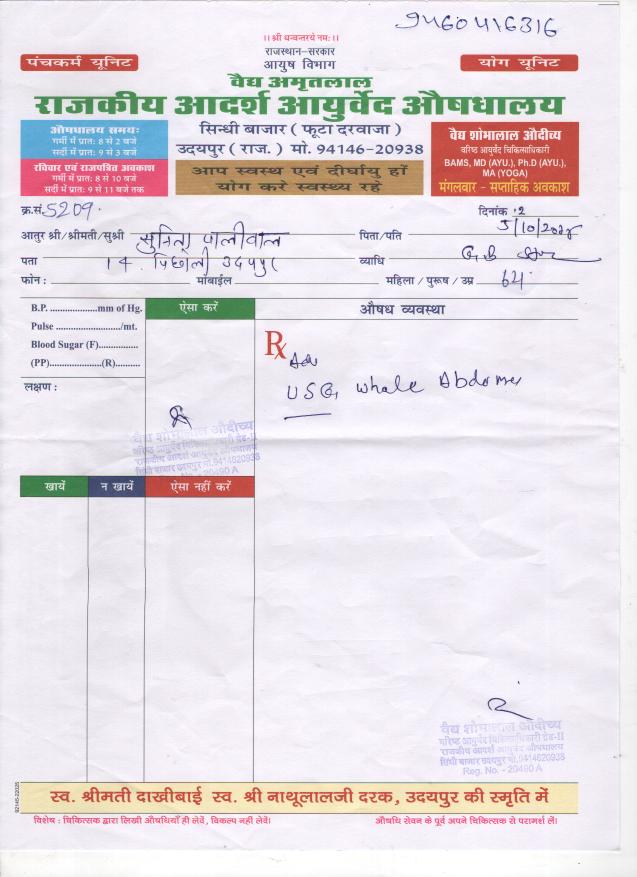 9460416316
।। श्री धन्वन्तरये नमः ।।
राजस्थान-सरकार
आयुष विभाग
पंचकर्म यूनिट
योग यूनिट
वैद्य अमृतलाल
राजकीय आदर्श आयुर्वेद औषधालय
औषधालय समयः
गर्मी में प्रातः 8 से 2 बजे
सर्दी में प्रातः 9 से 3 बजे
रविवार एवं राजपत्रित अवकाश
गर्मी में प्रातः 8 से 10 बजे
सर्दी में प्रातः 9 से 11 बजे तक
सिन्धी बाजार ( फूटा दरवाजा )
उदयपुर ( राज. ) मो. 94146-20938
आप स्वस्थ एवं दीर्घायु हों
योग करे स्वस्थ्य रहे
वैद्य शोभालाल औदीच्य
वरिष्ठ आयुर्वेद चिकित्साधिकारी
BAMS, MD (AYU.), Ph.D (AYU.),
MA (YOGA)
मंगलवार - सप्ताहिक अवकाश
क्र.सं. 5209. दिनांक :
आतुर श्री/श्रीमती/सुश्री सुनिता पालीवाल पिता/पति
पता 14. पिछोली उदयपुर व्याधि
फोन : मोबाईल महिला / पुरूष / उम्र 64
B.P. ...................mm of Hg.
Pulse ......................./mt.
Blood Sugar (F)...............
(PP).....................(R)..........
लक्षण :
ऐसा करें
औषध व्यवस्था
Rx
Adv
USG whole Abdomen
वैद्य शोभालाल औदीच्य
वरिष्ठ आयुर्वेद चिकित्साधिकारी ग्रेड-II
राजकीय आदर्श आयुर्वेद औषधालय
सिंधी बाजार उदयपुर मो.9414620938
No - 20490 A
खायें
न खायें
ऐसा नहीं करें
वैद्य शोभालाल औदीच्य
वरिष्ठ आयुर्वेद चिकित्साधिकारी ग्रेड-II
राजकीय आदर्श आयुर्वेद औषधालय
सिंधी बाजार उदयपुर मो.9414620938
Reg. No. - 20490 A
स्व. श्रीमती दाखीबाई स्व. श्री नाथूलालजी दरक, उदयपुर की स्मृति में
विशेष : चिकित्सक द्वारा लिखी औषधियाँ ही लेवें, विकल्प नहीं लेवें।
औषधि सेवन के पूर्व अपने चिकित्सक से परामर्श लें।